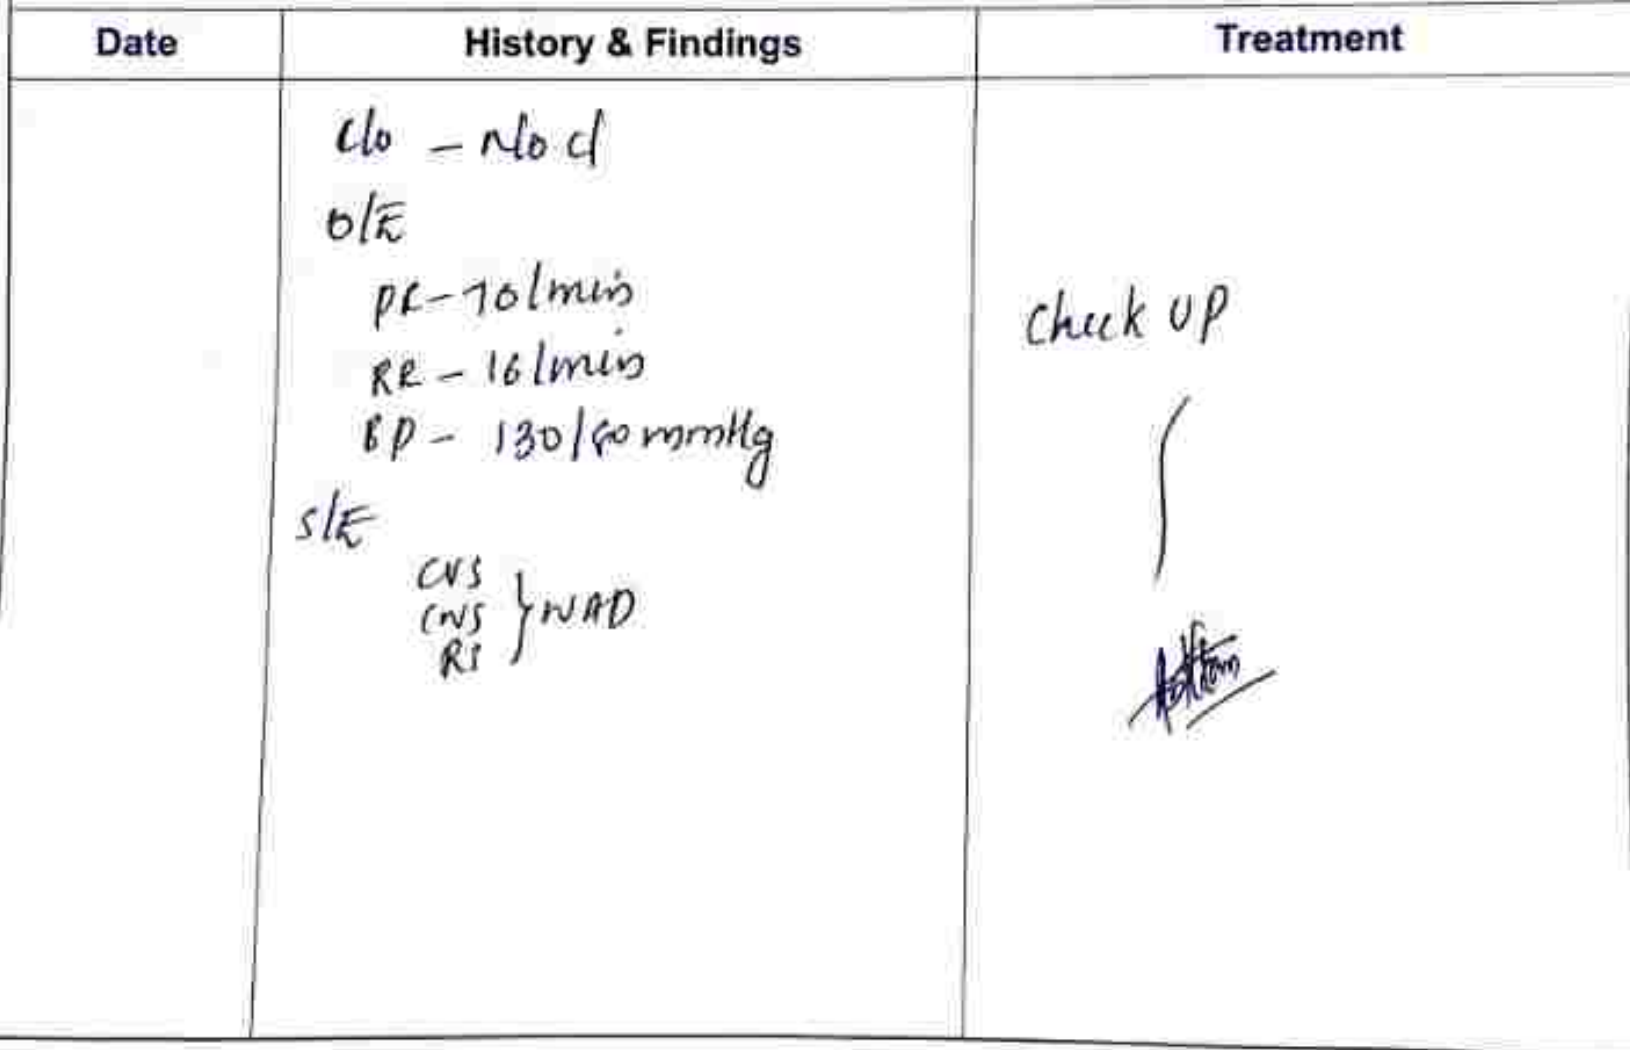 Date History & Findings Treatment
C/o - N/o c/
O/E
PR - 70/min
Check UP
RR - 16/min
BP - 130/80 mmHg
S/E
CVS
CNS } NAD
RS